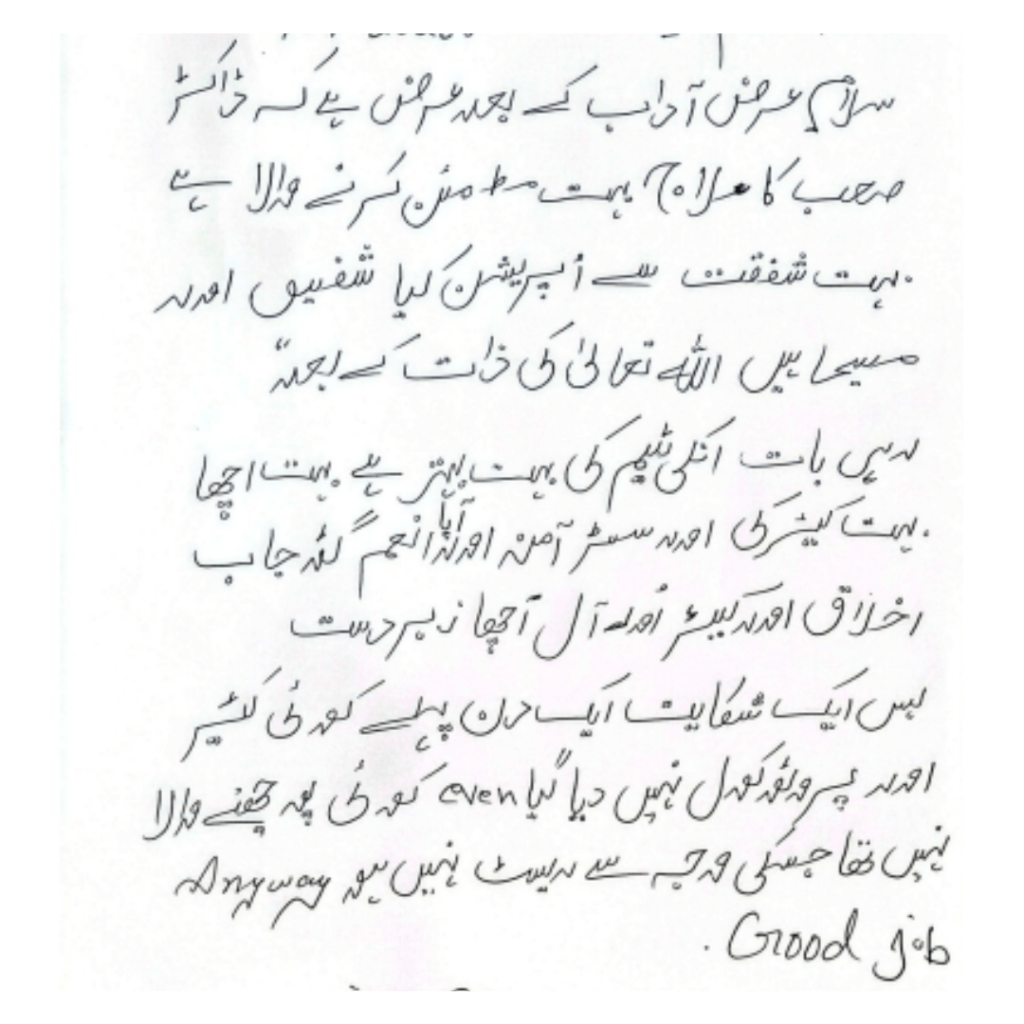 سلام عرض آداب کے بعد عرض ہے کہ ڈاکٹر
صحب کا علاج بہت مطمئن کرنے والا ہے
بہت شفقت سے اُپریشن کیا شفیق اور
مسیحا ہیں اللہ تعالیٰ کی ذات کے بعد"
رہی بات انکی ٹیم کی بہت بہتر ہے بہت اچھا
بہت کیئر کی اور سسٹر آمنہ اور آپا انعم گڈ جاب
اخلاق اور کیئر اُور آل اچھا زبردست
بس ایک شکایت ایک دن پہلے کوئی کئیر
اور پروٹوکول نہیں دیا گیا even کوئی پوچھنے والا
نہیں تھا جسکی وجہ سے ریسٹ نہیں ہو Anyway
Good job.